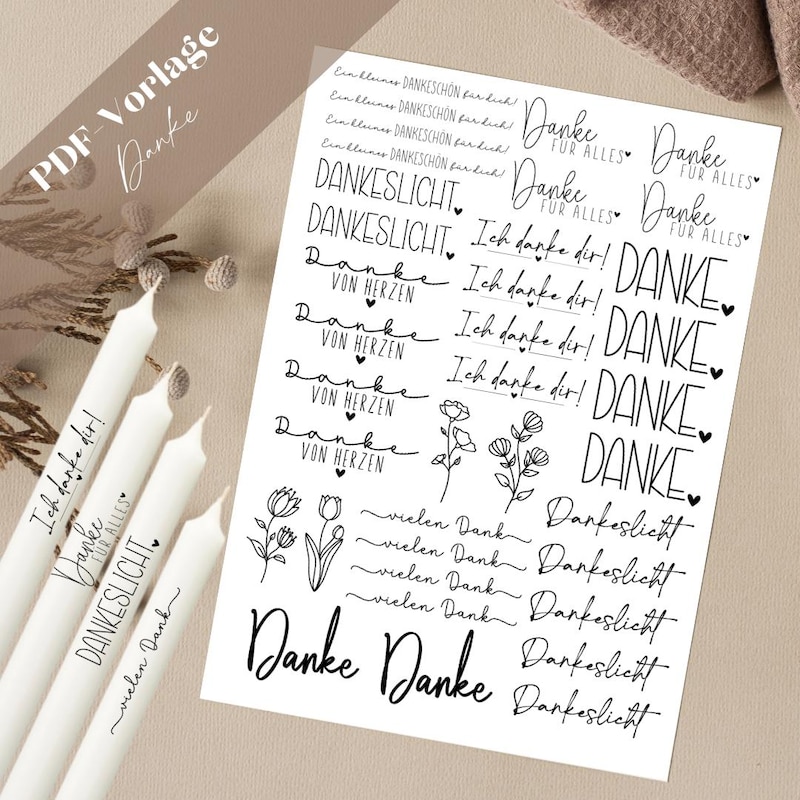 PDF-Vorlage
Danke
Ein kleines DANKESCHÖN für dich!
Ein kleines DANKESCHÖN für dich!
Ein kleines DANKESCHÖN für dich!
Ein kleines DANKESCHÖN für dich!
Danke
FÜR ALLES
Danke
FÜR ALLES
Danke
FÜR ALLES
Danke
FÜR ALLES
DANKESLICHT
DANKESLICHT
Danke
VON HERZEN
Danke
VON HERZEN
Danke
VON HERZEN
Danke
VON HERZEN
Ich danke dir!
Ich danke dir!
Ich danke dir!
Ich danke dir!
DANKE
DANKE
DANKE
DANKE
vielen Dank
vielen Dank
vielen Dank
vielen Dank
Dankeslicht
Dankeslicht
Dankeslicht
Dankeslicht
Dankeslicht
Danke Danke
Ich danke dir!
Danke
FÜR ALLES
DANKESLICHT
vielen Dank